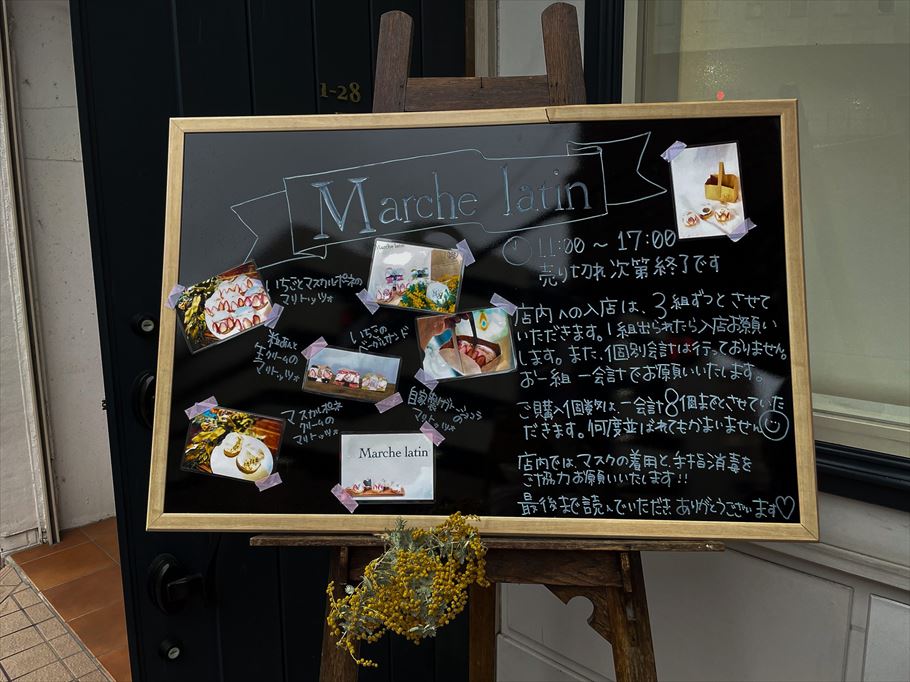 1-28
Marche latin
11:00 ~ 17:00
売り切れ次第終了です
いちごとマスカルポネの
マリトッツォ
Marche latin
いちごの
ベーグルサンド
粒あんと
生クリームの
マリトッツォ
マスカルポネ
クリームの
マリトッツォ
自家製
マリトッツォ
Marche latin
店内への入店は、3組ずつとさせて
いただきます。1組出られたら入店お願い
します。また、個別会計は行っておりません。
お一組一会計でお願いいたします。
ご購入個数は、一会計8個までとさせていた
だきます。何度並ばれてもかまいません
店内では、マスクの着用と、手指消毒を
ご協力お願いいたします!!
最後まで読んでいただきありがとうございます♡